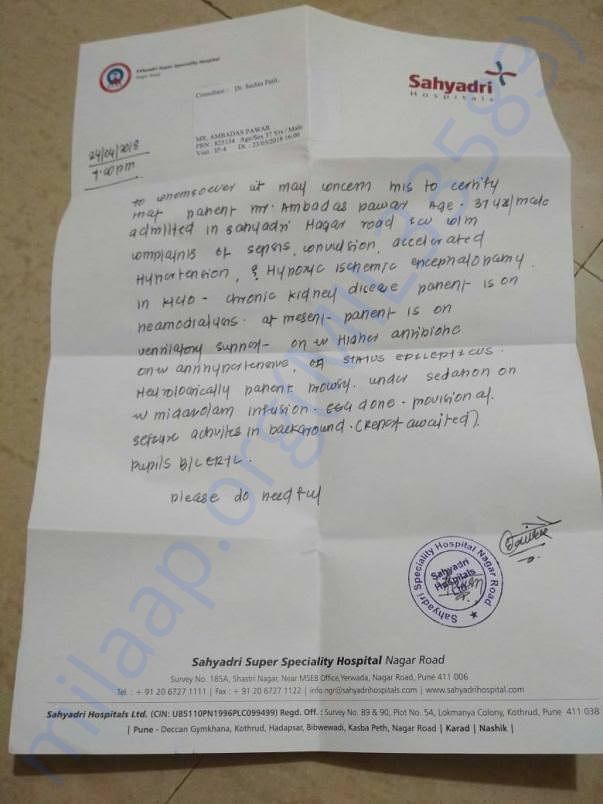 Sahyadri Super Speciality Hospital
Nagar Road
Sahyadri
Hospitals
Consultant : Dr. Sachin Patil,
MR. AMBADAS PAWAR
PRN : 825134 Age/Sex 37 Yrs / Male
Visit : IP-4 Dt. : 23/03/2018 16:00
24/04/2018
7:00pm
to whomsoever it may concern this to certify
that patient mr. Ambadas pawar Age : 37 yr/male
admitted in sahyadri Nagar road icu with
complaints of sepsis, convulsion, accelarated
Hypertension, & Hypoxic ischemic encephalopathy.
in K/C/O - chronic kidney disease patient is on
heamodialysis. at present- patient is on
ventilatory support- on IV Higher antibiotic
on IV antihypertensive, status epilepticus.
Neurologically patient drowsy. under sedation on
IV midazolam infusion. EEG done. provisional.
seizure activites in background. (Report awaited).
pupils B/L ERTL.
please do needful
Sahyadri Speciality Hospital Nagar Road
Sahyadri
Hospitals
Ltd.
Sahyadri Super Speciality Hospital Nagar Road
Survey No. 185A, Shastri Nagar, Near MSEB Office, Yerwada, Nagar Road, Pune 411 006
Tel. : + 91 20 6727 1111 | Fax : + 91 20 6727 1122 | info.ngr@sahyadrihospitals.com | www.sahyadrihospital.com
Sahyadri Hospitals Ltd. (CIN: U85110PN1996PLC099499) Regd. Off. : Survey No. 89 & 90, Plot No. 54, Lokmanya Colony, Kothrud, Pune 411 038
| Pune - Deccan Gymkhana, Kothrud, Hadapsar, Bibwewadi, Kasba Peth, Nagar Road | Karad | Nashik |